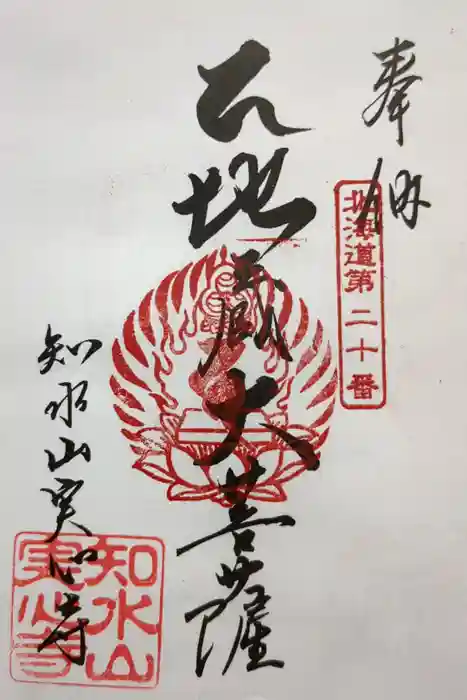 奉納
北海道第二十番
石地蔵大菩薩
知水山実心寺
知水山
實心寺